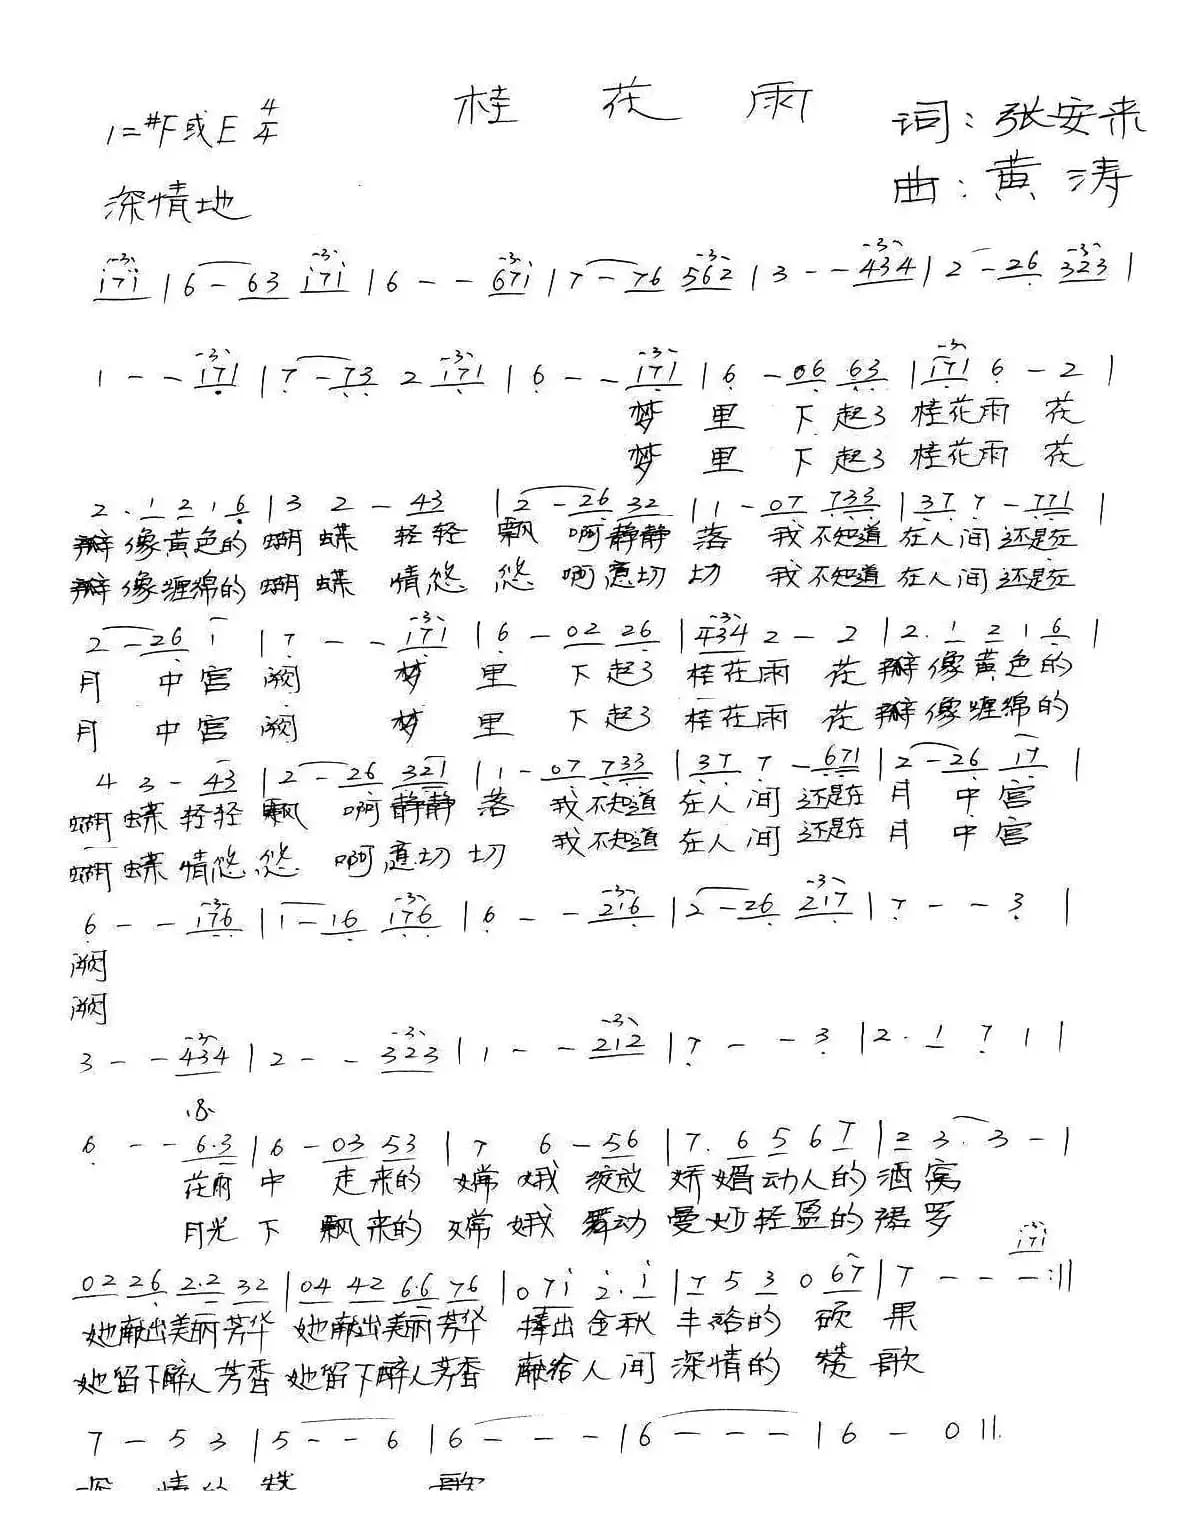 桂花雨
1=#F或E 4/4
词:张安来
曲:黄涛
深情地
i7i | 6 - 63 i7i | 6 - - 67i | 7 - 76 562 | 3 - - 434 | 2 - 26 323 |
1 - - 171 | 7 - 73 2 171 | 6 - - 171 | 6 - 06 63 | 171 6 - 2 |
梦里下起了桂花雨花
梦里下起了桂花雨花
2. 1 2 1 6 | 3 2 - 43 | 2 - 26 32 | 1 - 07 733 | 37 7 - 771 |
瓣像黄色的蝴蝶轻轻飘啊静静落我不知道在人间还是在
瓣像缠绵的蝴蝶情悠悠啊意切切我不知道在人间还是在
2 - 26 1 | 7 - - 171 | 6 - 02 26 | 434 2 - 2 | 2. 1 2 1 6 |
月中宫阙梦里下起了桂花雨花瓣像黄色的
月中宫阙梦里下起了桂花雨花瓣像缠绵的
4 3 - 43 | 2 - 26 321 | 1 - 07 733 | 37 7 - 671 | 2 - 26 17 |
蝴蝶轻轻飘啊静静落我不知道在人间还是在月中宫
蝴蝶情悠悠啊意切切我不知道在人间还是在月中宫
6 - - 176 | 1 - 16 176 | 6 - - 216 | 2 - 26 217 | 7 - - 3 |
阙
阙
3 - - 434 | 2 - - 323 | 1 - - 212 | 7 - - 3 | 2. 1 7 1 |
6 - - 6.3 | 6 - 03 53 | 7 6 - 56 | 7. 6 5 6 7 | 2 3. 3 - |
花雨中走来的嫦娥绽放娇媚动人的酒窝
月光下飘来的嫦娥舞动曼妙轻盈的裙罗
i7i
02 26 2.2 32 | 04 42 6.6 76 | 0 7i 2. i | 7 5 3 0 67 | 7 - - - :||
她献出美丽芳华她献出美丽芳华捧出金秋丰裕的硕果
她留下醉人芳香她留下醉人芳香献给人间深情的赞歌
7 - 5 3 | 5 - - 6 | 6 - - - | 6 - - - | 6 - 0 ||
深情的赞歌